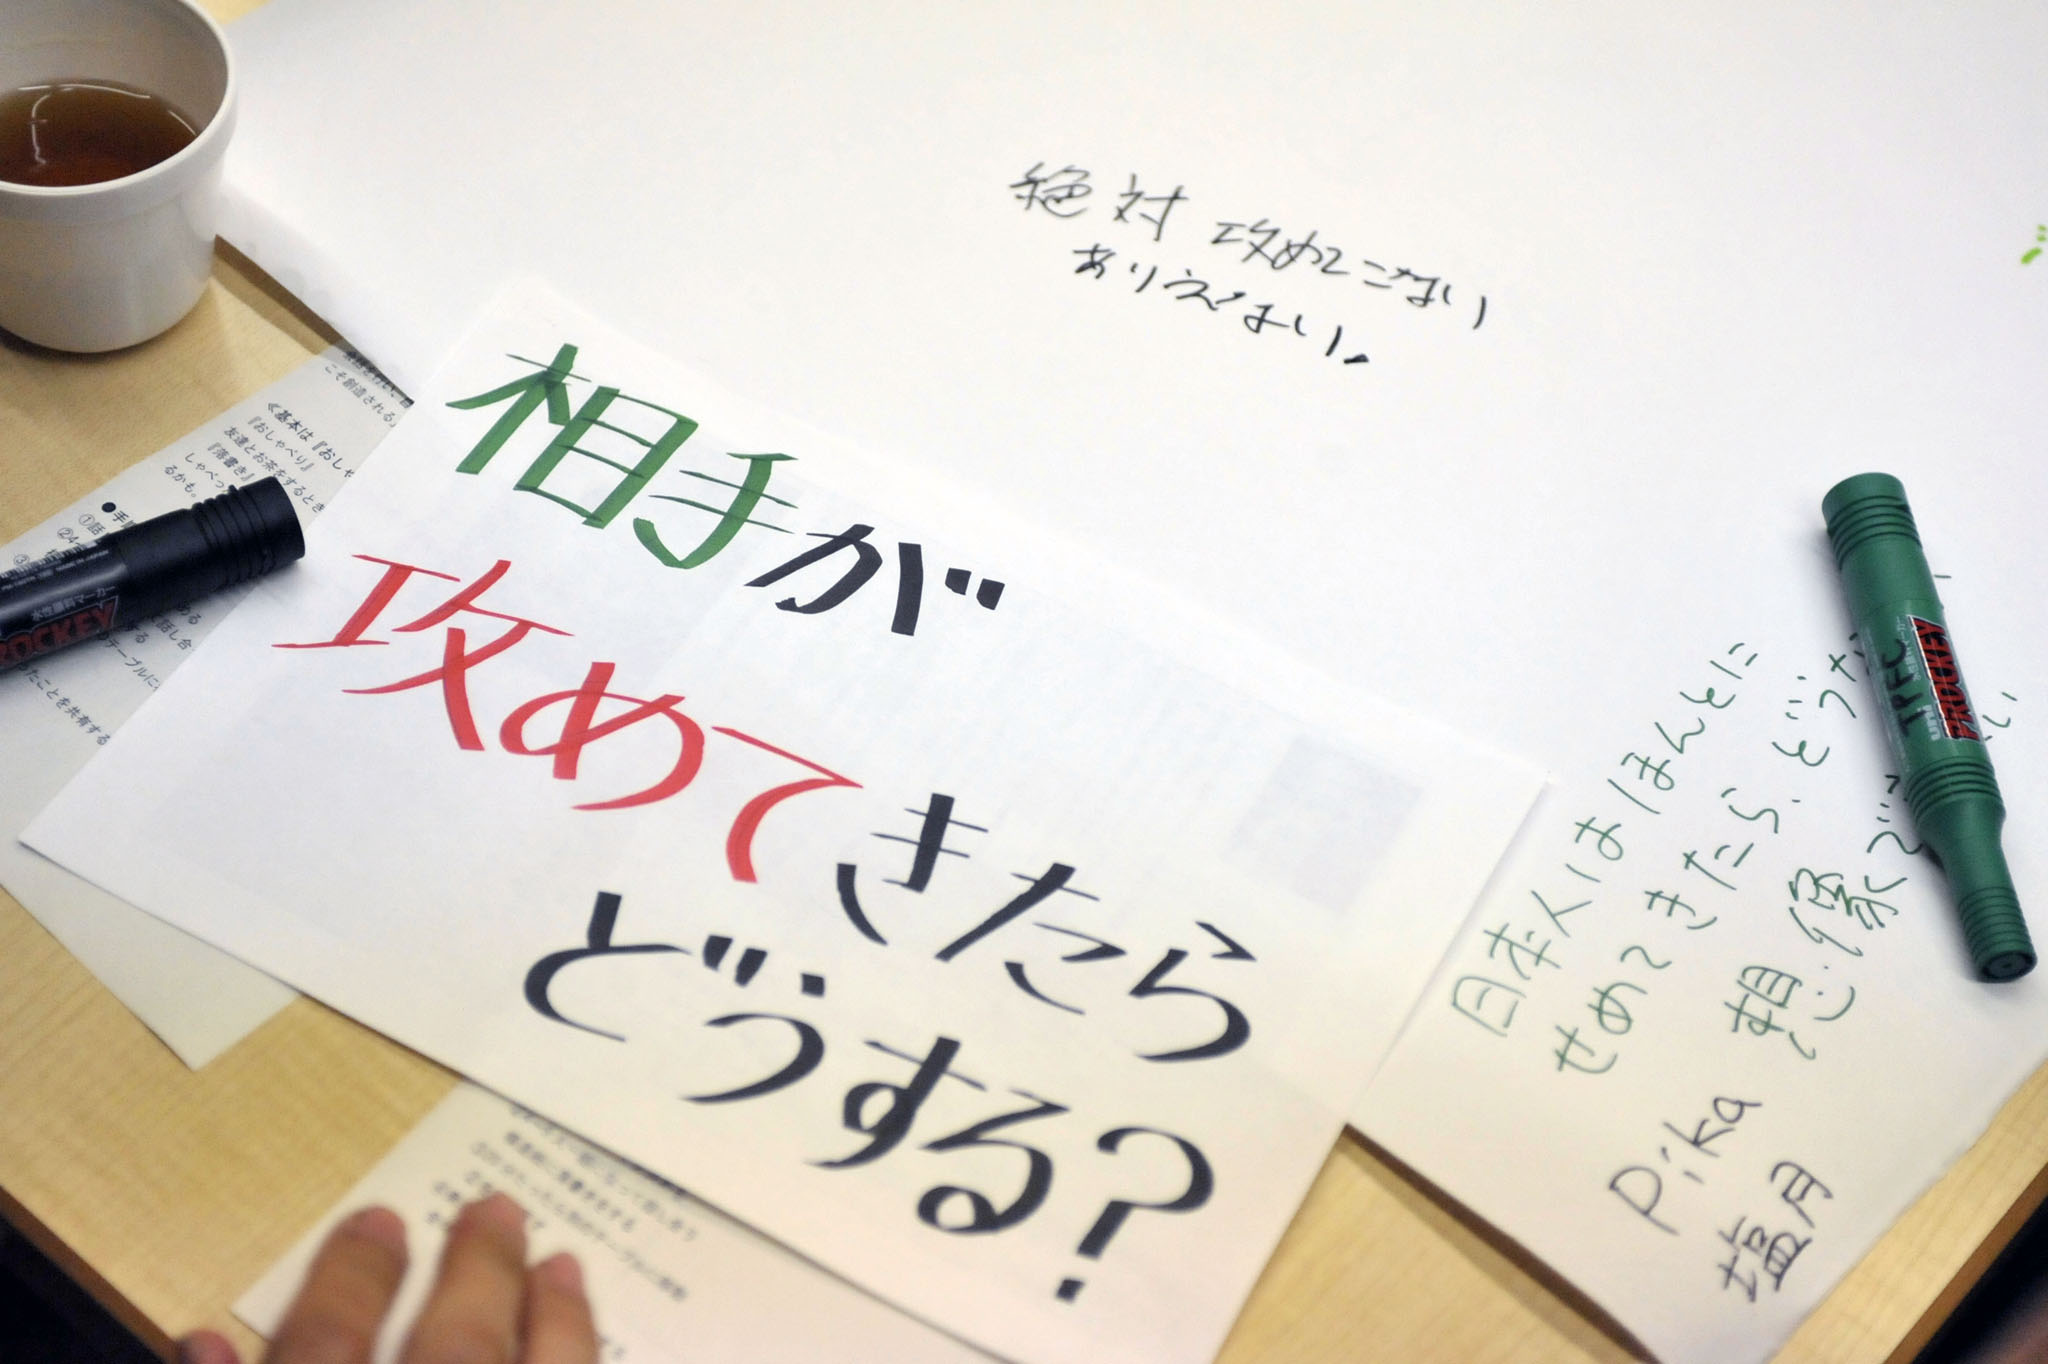 絶対攻めてこない
ありえない。
相手が
攻めてきたら
どうする?
日本人はほんとに
せめてきたら、どうな
想像で
Pika
塩月
こそ創造される
≪基本は『おしゃ
『おしゃべり』
友達とお茶をするとき
『落書き』
しゃべっ
るかも。
①話
②4
③
のテーブルに
たことを共有する
水性顔料マーカー
PROCKEY
uni
PROCKEY